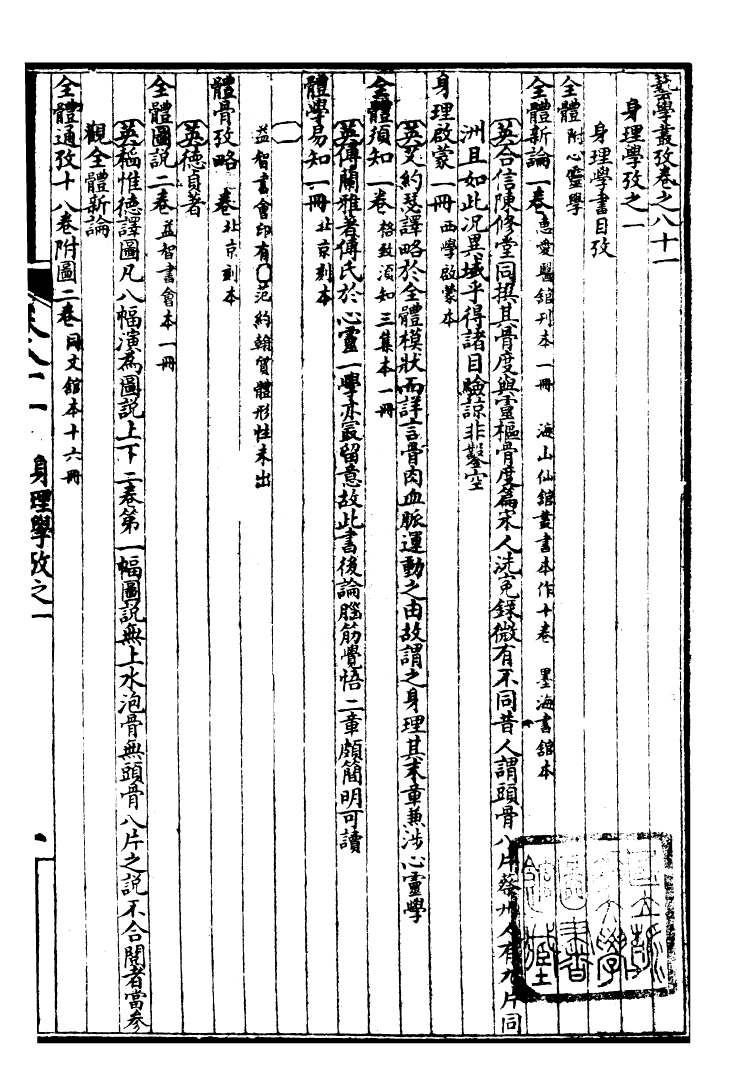 藝學叢攷卷之八十一
身理學攷之一
身理學書目攷
全體附心靈學
全體新論一卷惠愛醫館刊本一冊 海山仙館叢書本作十卷 墨海書館本
英合信陳修堂同撰其骨度與靈樞骨度篇宋人洗冤錄微有不同昔人謂頭骨八片蔡州人有九片同
洲且如此况異域乎得諸目驗諒非鑿空
身理啟蒙一冊西學啟蒙本
英艾約瑟譯略於全體模狀而詳言骨肉血脈運動之由故謂之身理其末章兼涉心靈學
全體須知一卷格致須知三集本一冊
英傅蘭雅著傅氏於心靈一學亦最留意故此書後論腦筋覺悟二章頗簡明可讀
體學易知一冊北京刻本
益智書會印有〇范約翰質體形性未出
體骨攷略一卷北京刻本
英德貞著
全體圖說二卷益智書會本一冊
英稻惟德譯圖凡八幅演為圖說上下二卷第一幅圖說無上水泡骨無頭骨八片之說不合閱者當參
觀全體新論
全體通攷十八卷附圖二卷同文館本十六冊
身理學攷之一